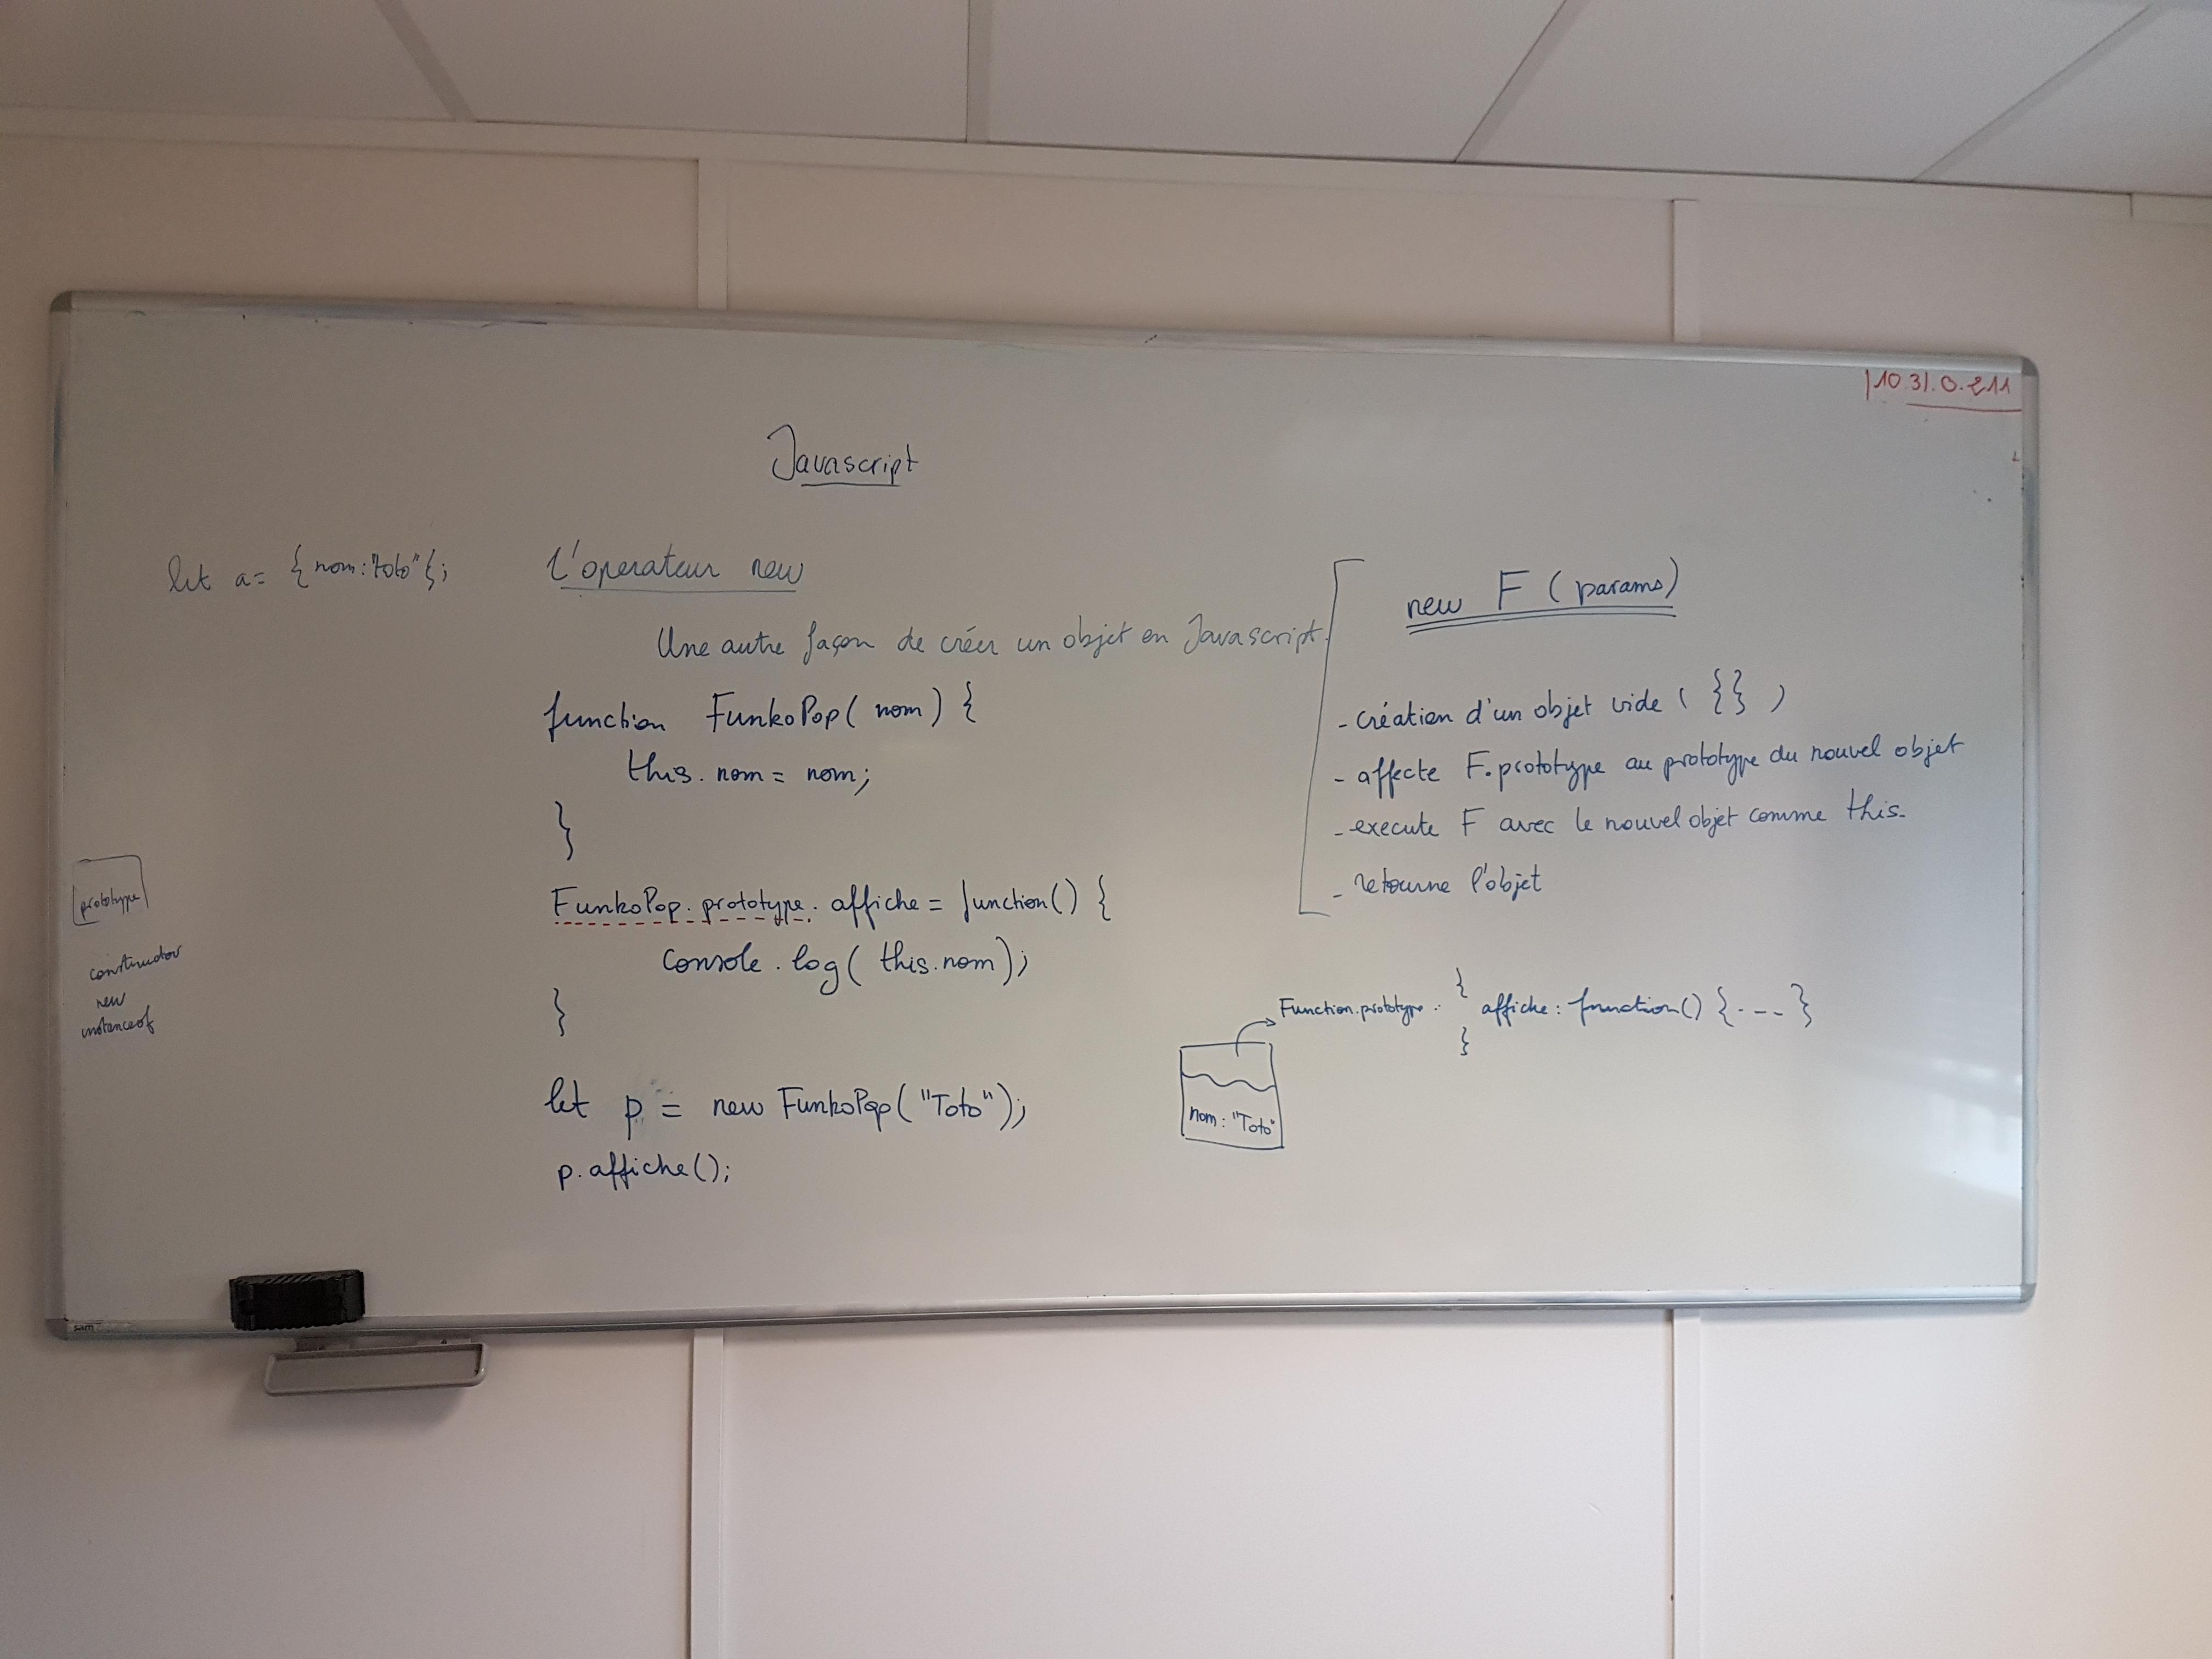 10.31.0.211
Javascript
let a = { nom: "toto" };
L'operateur new
Une autre façon de créer un objet en Javascript.
function FunkoPop( nom ) {
this.nom = nom;
}
FunkoPop.prototype.affiche = function() {
console.log( this.nom );
}
let p = new FunkoPop( "Toto" );
p.affiche();
new F ( params )
- création d'un objet vide ( {} )
- affecte F.prototype au prototype du nouvel objet
- execute F avec le nouvel objet comme this.
- retourne l'objet
Function.prototype : { affiche : function() { . - - - }
}
nom : "Toto"
prototype
constructor
new
instanceof
sam